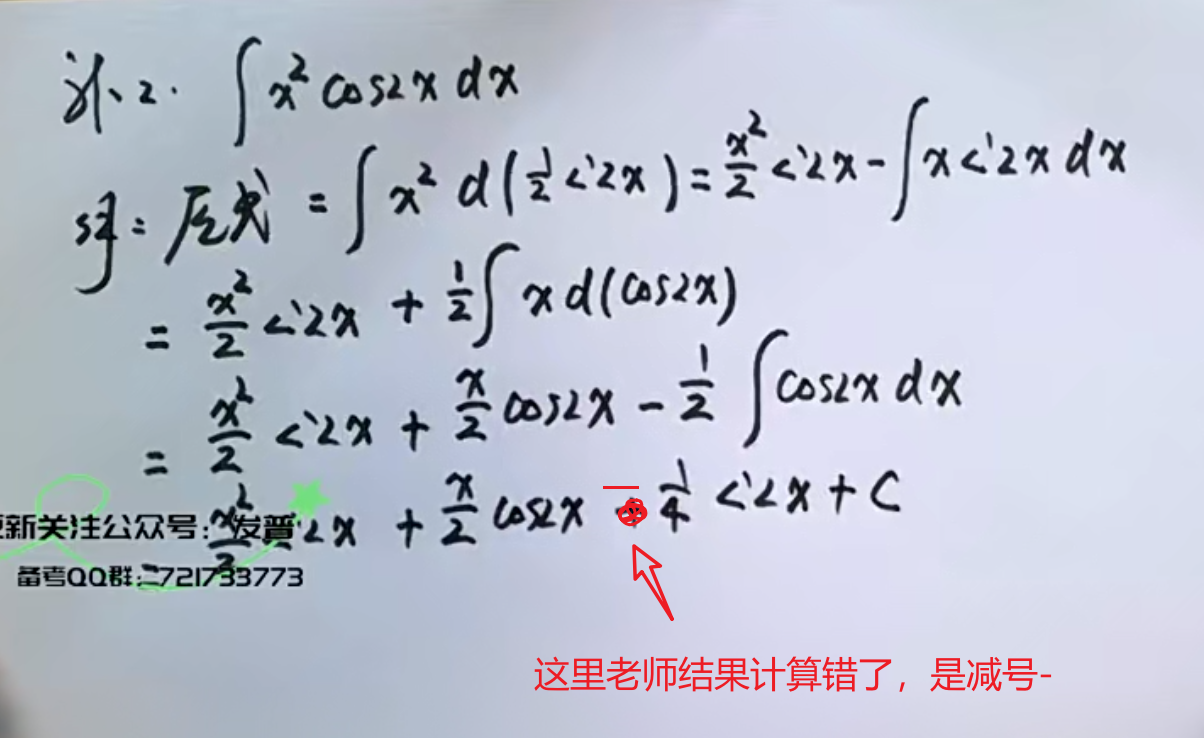 补2. ∫ x² cos2x dx
解: 原式 = ∫ x² d(½ <'2x) = x²/2 <'2x - ∫ x <'2x dx
= x²/2 <'2x + ½ ∫ x d(cos2x)
= x²/2 <'2x + x/2 cos2x - ½ ∫ cos2x dx
= x²/2 <'2x + x/2 cos2x - ¼ <'2x + C
更新关注公众号: 发普
备考QQ群: 721733773
这里老师结果计算错了，是减号-